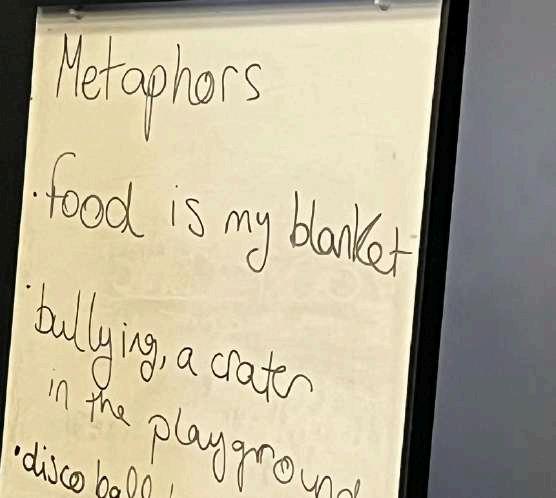 Metaphors
· food is my blanket
· bullying, a crater
in the playground
· disco ball